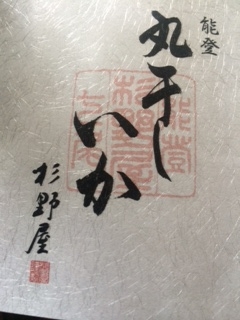 能登
丸干し
いか
杉野屋